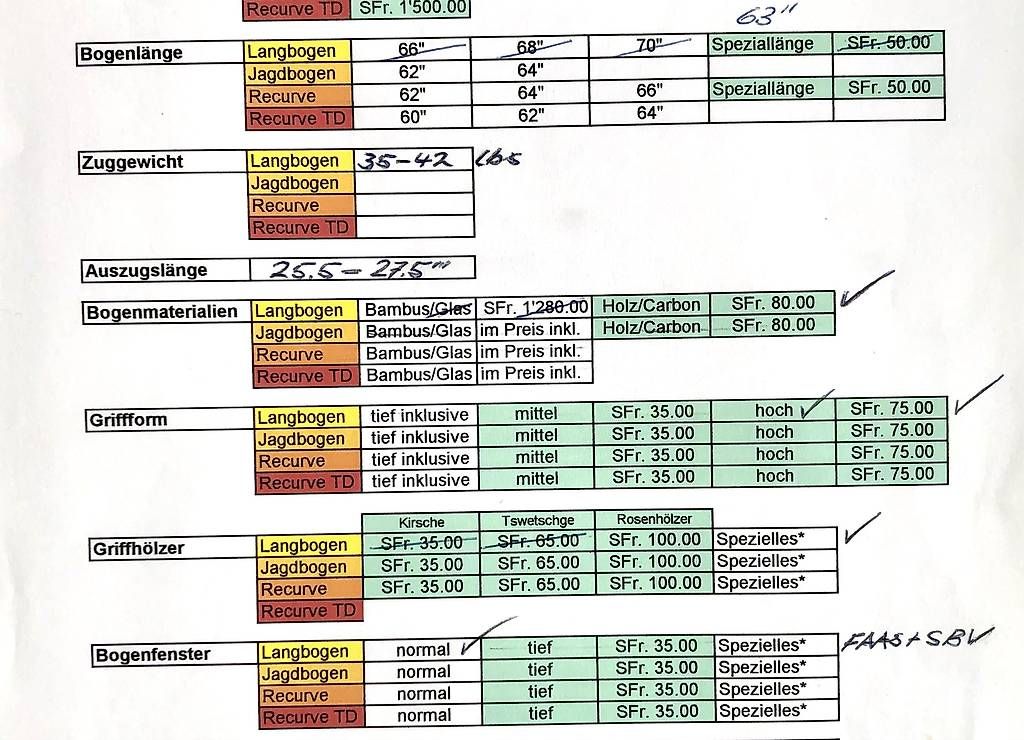 Recurve TD SFr. 1'500.00
63"
Bogenlänge Langbogen 66" 68" 70" Speziallänge SFr. 50.00
Jagdbogen 62" 64"
Recurve 62" 64" 66" Speziallänge SFr. 50.00
Recurve TD 60" 62" 64"
Zuggewicht Langbogen 35-42 lbs
Jagdbogen
Recurve
Recurve TD
Auszugslänge 25.5 - 27.5"
Bogenmaterialien Langbogen Bambus/Glas SFr. 1'280.00 Holz/Carbon SFr. 80.00
Jagdbogen Bambus/Glas im Preis inkl. Holz/Carbon SFr. 80.00
Recurve Bambus/Glas im Preis inkl.
Recurve TD Bambus/Glas im Preis inkl.
Griffform Langbogen tief inklusive mittel SFr. 35.00 hoch SFr. 75.00
Jagdbogen tief inklusive mittel SFr. 35.00 hoch SFr. 75.00
Recurve tief inklusive mittel SFr. 35.00 hoch SFr. 75.00
Recurve TD tief inklusive mittel SFr. 35.00 hoch SFr. 75.00
Kirsche Tswetschge Rosenhölzer
Griffhölzer Langbogen SFr. 35.00 SFr. 65.00 SFr. 100.00 Spezielles*
Jagdbogen SFr. 35.00 SFr. 65.00 SFr. 100.00 Spezielles*
Recurve SFr. 35.00 SFr. 65.00 SFr. 100.00 Spezielles*
Recurve TD
Bogenfenster Langbogen normal tief SFr. 35.00 Spezielles* FAAS + SBV
Jagdbogen normal tief SFr. 35.00 Spezielles*
Recurve normal tief SFr. 35.00 Spezielles*
Recurve TD normal tief SFr. 35.00 Spezielles*